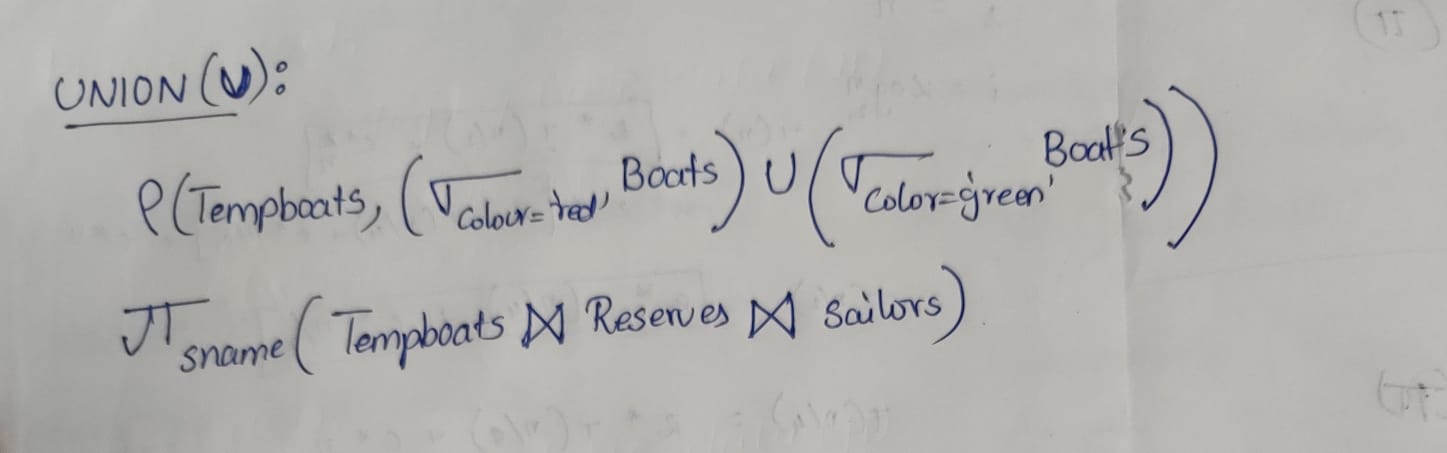 UNION (∪):
ρ(Tempboats, (σ Colour='red' Boats) ∪ (σ Color='green' Boats))
π sname (Tempboats ⋈ Reserves ⋈ Sailors)